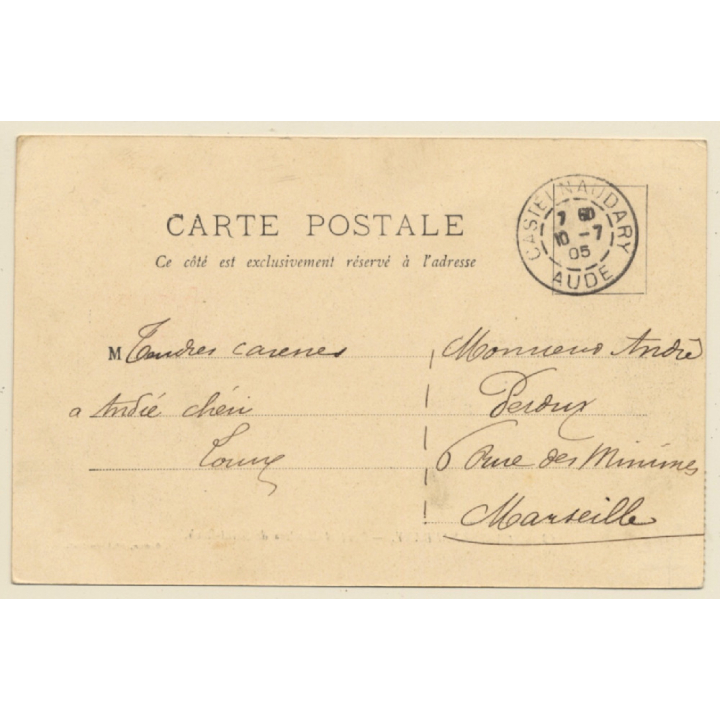 CARTE POSTALE
Ce côté est exclusivement réservé à l'adresse
CASTELNAUDARY
7 50
10 -7
05
AUDE
M Tendres caresses
a André chéri
Monsieur André
Peroux
6 Rue des Minimes
Marseille